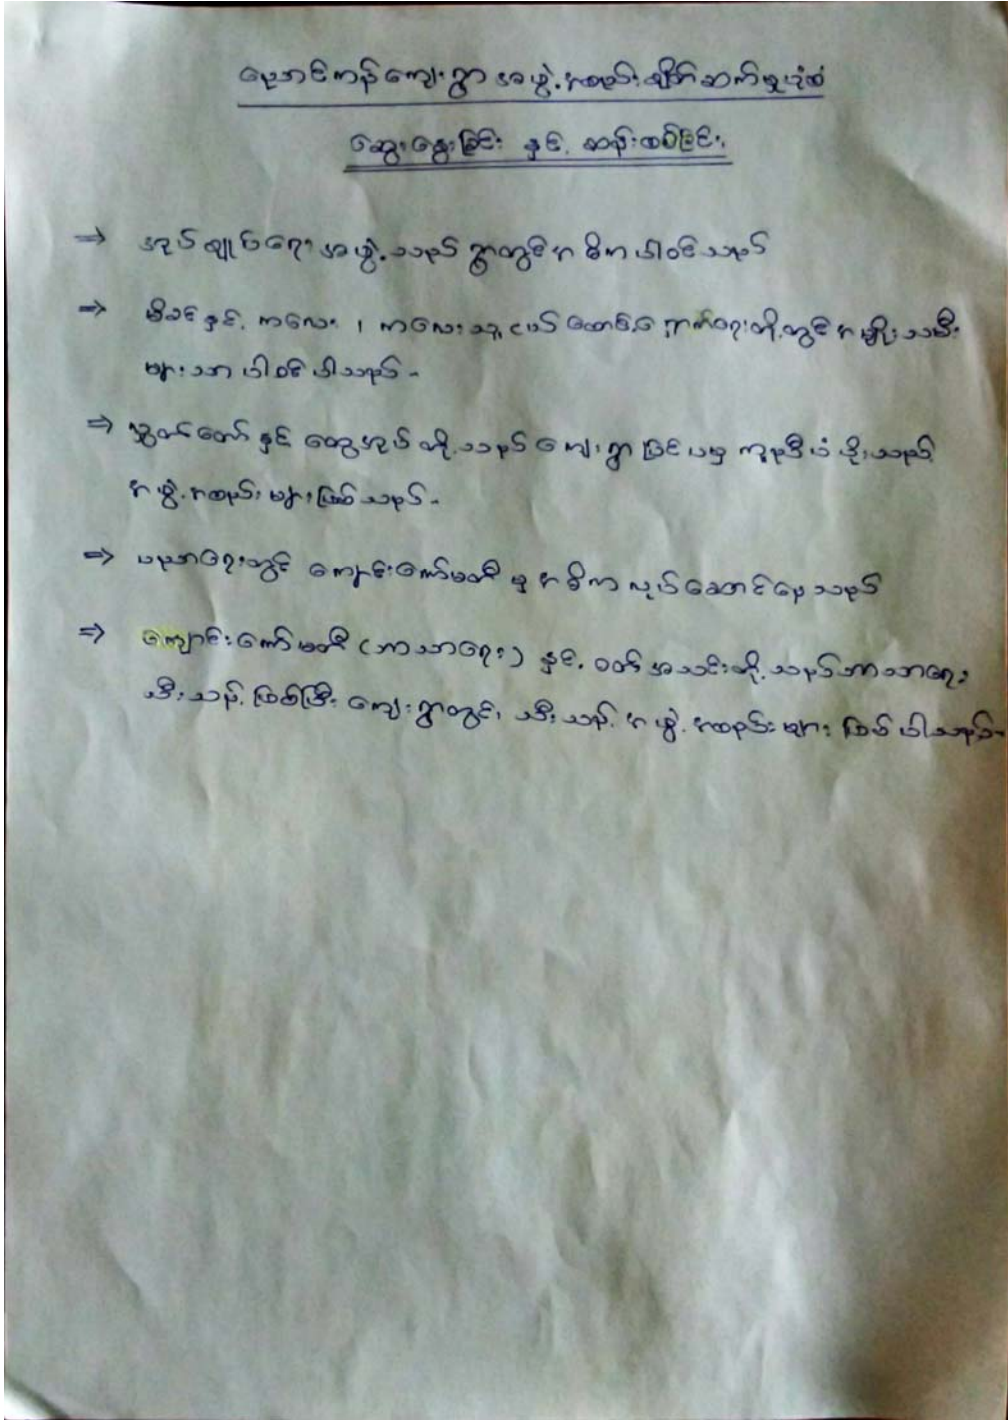 ညောင်ကန်ကျေးရွာ အဖွဲ့အစည်းချိတ်ဆက်မှုပုံစံ
ဆွေးနွေးခြင်း နှင့် ဆန်းစစ်ခြင်း
⇒ အုပ်ချုပ်ရေးအဖွဲ့သည် ရွာတွင်အဓိကပါဝင်သည်
⇒ မိခင်နှင့် ကလေး ၊ ကလေးသူငယ်စောင့်ရှောက်ရေးတို့တွင်အမျိုးသမီး
များသာ ပါဝင်ပါသည်-
⇒ လွှတ်တော်နှင့် ထွေအုပ်တို့သည် ကျေးရွာပြင်ပမှ ကူညီပံ့ပိုးသည့်
အဖွဲ့အစည်းများဖြစ်သည်-
⇒ ပညာရေးတွင် ကျောင်းကော်မတီမှအဓိကလုပ်ဆောင်နေသည်
⇒ ကျောင်းကော်မတီ (ဘာသာရေး) နှင့် ဝတ်အသင်းတို့သည်ဘာသာရေး
သီးသန့်ဖြစ်ပြီး ကျေးရွာတွင်း သီးသန့်အဖွဲ့အစည်းများဖြစ်ပါသည်-